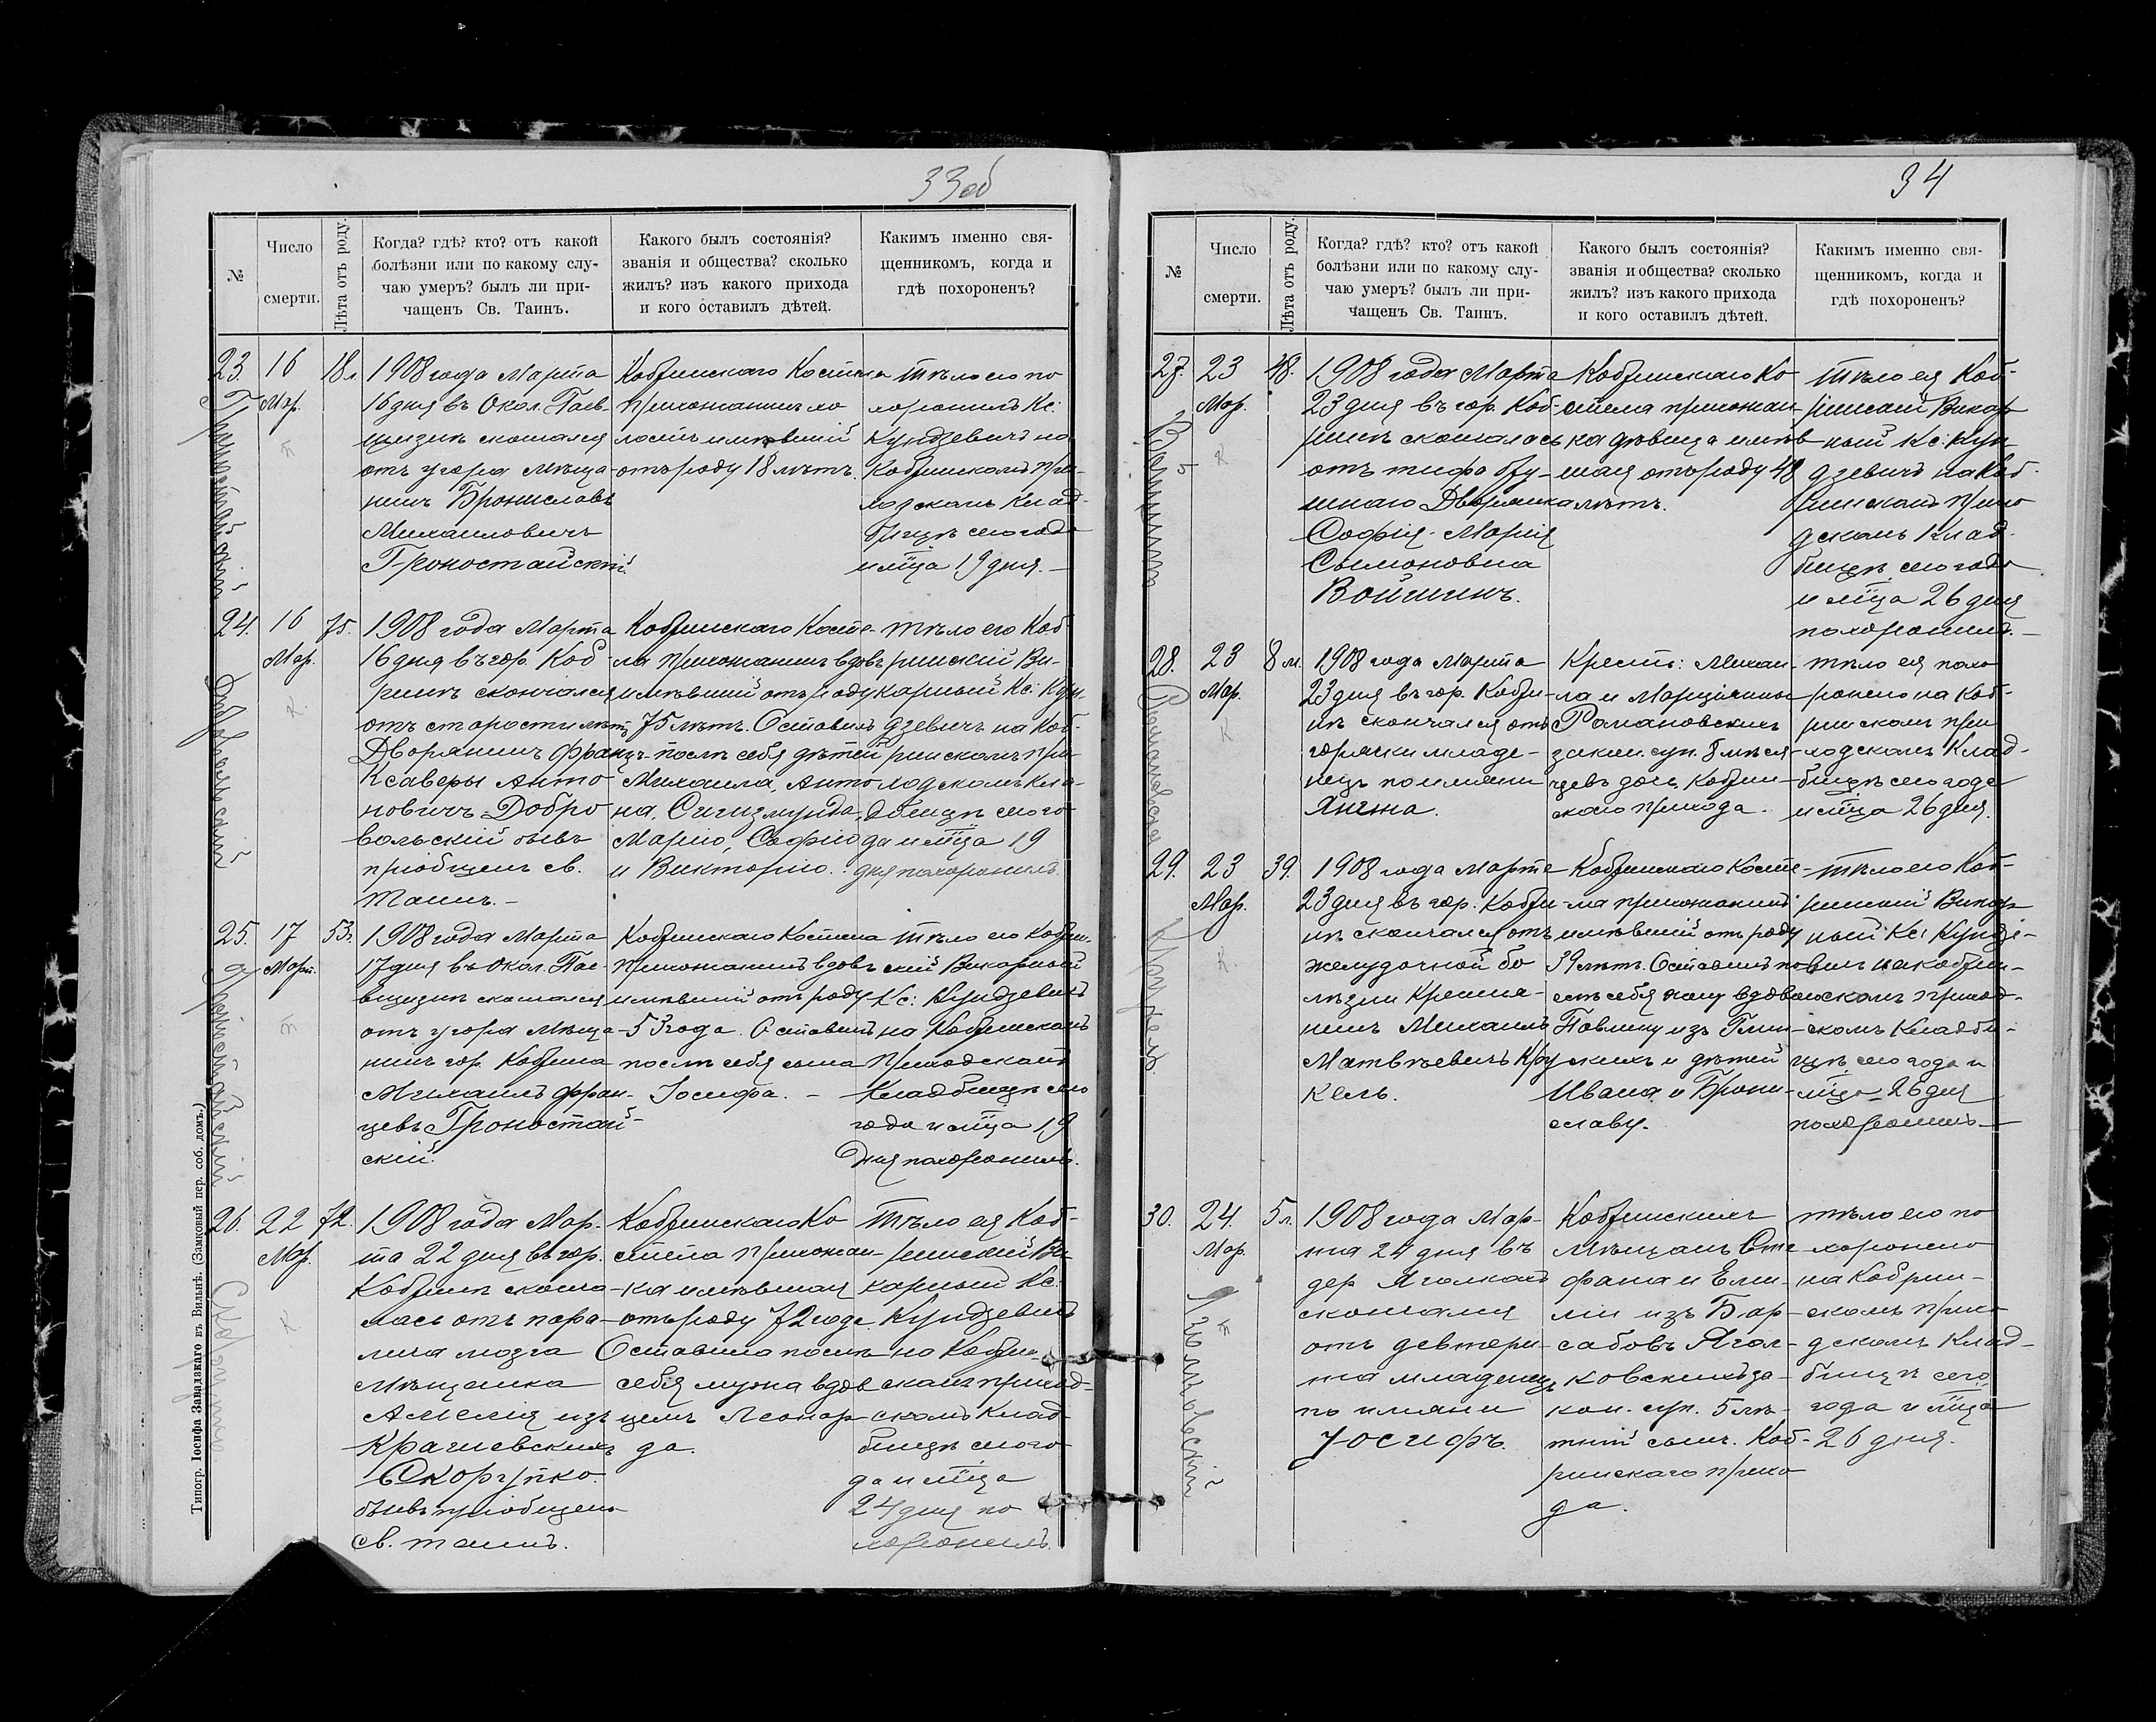 33об
№
Число
смерти.
Лѣта отъ роду.
Когда? гдѣ? кто? отъ какой
болѣзни или по какому слу-
чаю умеръ? былъ ли при-
чащенъ Св. Таинъ.
Какого былъ состоянія?
званія и общества? сколько
жилъ? изъ какого прихода
и кого оставилъ дѣтей.
Какимъ именно свя-
щенникомъ, когда и
гдѣ похороненъ?
23.
Гроностайскій
16
Мар.
18 л.
1908 года Марта
16 дня въ Окол.
скончался
отъ угора мѣща-
нинъ Брониславъ
Михаиловичъ
Гроностайскій.
Кобринскаго Костела
прихожанинъ хо
лостъ имѣвшій
отъ роду 18 лѣтъ.
тѣло его по
хоронилъ Кс:
Кундзевичъ на
Кобринскомъ при-
ходскомъ клад-
бищѣ сего года
и мца 19 дня.
24.
Добровольскій
16
Мар.
75.
1908 года Марта
16 дня въ гор. Коб
ринѣ скончался
отъ старости лѣтъ
Дворянинъ Францъ-
Ксаверы Анто
новичъ Добро
вольскій бывъ
пріобщенъ св.
Таинъ.
Кобринскаго Косте-
ла прихожанинъ вдовъ
имѣвшій отъ роду
75 лѣтъ. Оставилъ
послѣ себя дѣтей
Михаила, Анто
на, Сигизмунда,
Марію, Софію
и Викторію.
тѣло его Коб-
ринскій Ви-
карный Кс: Кун-
дзевичъ на Коб-
ринскомъ при
ходскомъ кла-
дбищѣ сего го-
да и мца 19
дня похоронилъ.
25.
Гроностайскій
17
Март.
53 г.
1908 года Марта
17 дня въ Окол.
скончался
отъ угора мѣща-
нинъ гор. Кобрина
Михаилъ Фран-
цевъ Гроностай-
скій.
Кобринскаго Костела
прихожанинъ вдовъ
имѣвшій отъ роду
53 года. Оставилъ
послѣ себя сына
Іосифа.
тѣло его Кобрин-
скій Викарный
Кс: Кундзевичъ
на Кобринскомъ
приходскомъ
кладбищѣ сего
года и мца 19
дня похоронилъ.
26.
Скорупко
22
Мар.
72.
1908 года Мар-
та 22 дня въ гор.
Кобринѣ сконча-
лась отъ пара-
лича мозга
мѣщанка
Амелія изъ
Крачевскихъ
Скорупко
бывъ пріобщена
св. таинъ.
Кобринскаго Ко
стела прихожан-
ка имѣвшая
отъ роду 72 года.
Оставила послѣ
себя мужа вдов
цемъ Леонар
да.
Тѣло ея Коб-
ринскій Ви-
карный Кс:
Кундзевичъ
на Кобрин-
скомъ приход-
скомъ клад-
бищѣ сего го-
да и мца
24 дня по
хоронилъ.
Типогр. Іосифа Завадзкаго въ Вильнѣ. (Замковый пер. соб. домъ.)
34
№
Число
смерти.
Лѣта отъ роду.
Когда? гдѣ? кто? отъ какой
болѣзни или по какому слу-
чаю умеръ? былъ ли при-
чащенъ Св. Таинъ.
Какого былъ состоянія?
званія и общества? сколько
жилъ? изъ какого прихода
и кого оставилъ дѣтей.
Какимъ именно свя-
щенникомъ, когда и
гдѣ похороненъ?
27.
23
Мар.
48.
1908 года Марта
23 дня въ гор. Коб-
ринѣ скончалась
отъ тифа брю-
шнаго Дворянка
Софія-Марія
Сымоновна
Войшинъ.
Кобринскаго Ко
стела прихожан-
ка дѣвица имѣв
шая отъ роду 48
лѣтъ.
тѣло ея Коб-
ринскій Викар
ный Кс: Кун
дзевичъ на Коб-
ринскомъ прихо
дскомъ клад-
бищѣ сего года
и мца 26 дня
похоронилъ.
28.
Романовская
23
Мар.
8 м.
1908 года Марта
23 дня въ гор. Кобри-
нѣ скончался отъ
горячки младе-
нецъ по имени
Янина.
Крест: Михаи-
ла и Марціянны
Романовскихъ
закон. суп. 8 мѣся-
цевъ дочь Кобрин-
скаго прихода.
тѣло ея похо
ронено на Коб-
ринскомъ при
ходскомъ клад-
бищѣ сего года
и мца 26 дня.
29.
Крукель.
23
Мар.
39.
1908 года Марта
23 дня въ гор. Кобри-
нѣ скончался отъ
желудочной бо
лѣзни крестья-
нинъ Михаилъ
Матвѣевичъ Кру
кель.
Кобринскаго Косте-
ла прихожанинъ
имѣвшій отъ роду
39 лѣтъ. Оставилъ по-
слѣ себя жену вдовою
Павлину изъ
и дѣтей
Ивана и Брони-
славу.
тѣло его Коб-
ринскій Викар
ный Кс: Кундзе-
вичъ на Кобрин-
скомъ приход-
скомъ кладби-
щѣ сего года и
мца 26 дня
похоронилъ
30.
Яголковскій
24
Мар.
5 л.
1908 года Мар-
та 24 дня въ
дер.
скончался
отъ дефтери
та младенецъ
по имени
Іосифъ.
Кобринскихъ
мѣщанъ Сте
фана и Еми-
ліи изъ Бар-
сабовъ Ягол-
ковскихъ за-
кон. суп. 5 лѣ-
тній сынъ. Коб-
ринскаго прихо
да.
тѣло его по
хоронено
на Кобрин-
скомъ прихо
дскомъ клад-
бищѣ сего
года и мца
26 дня.